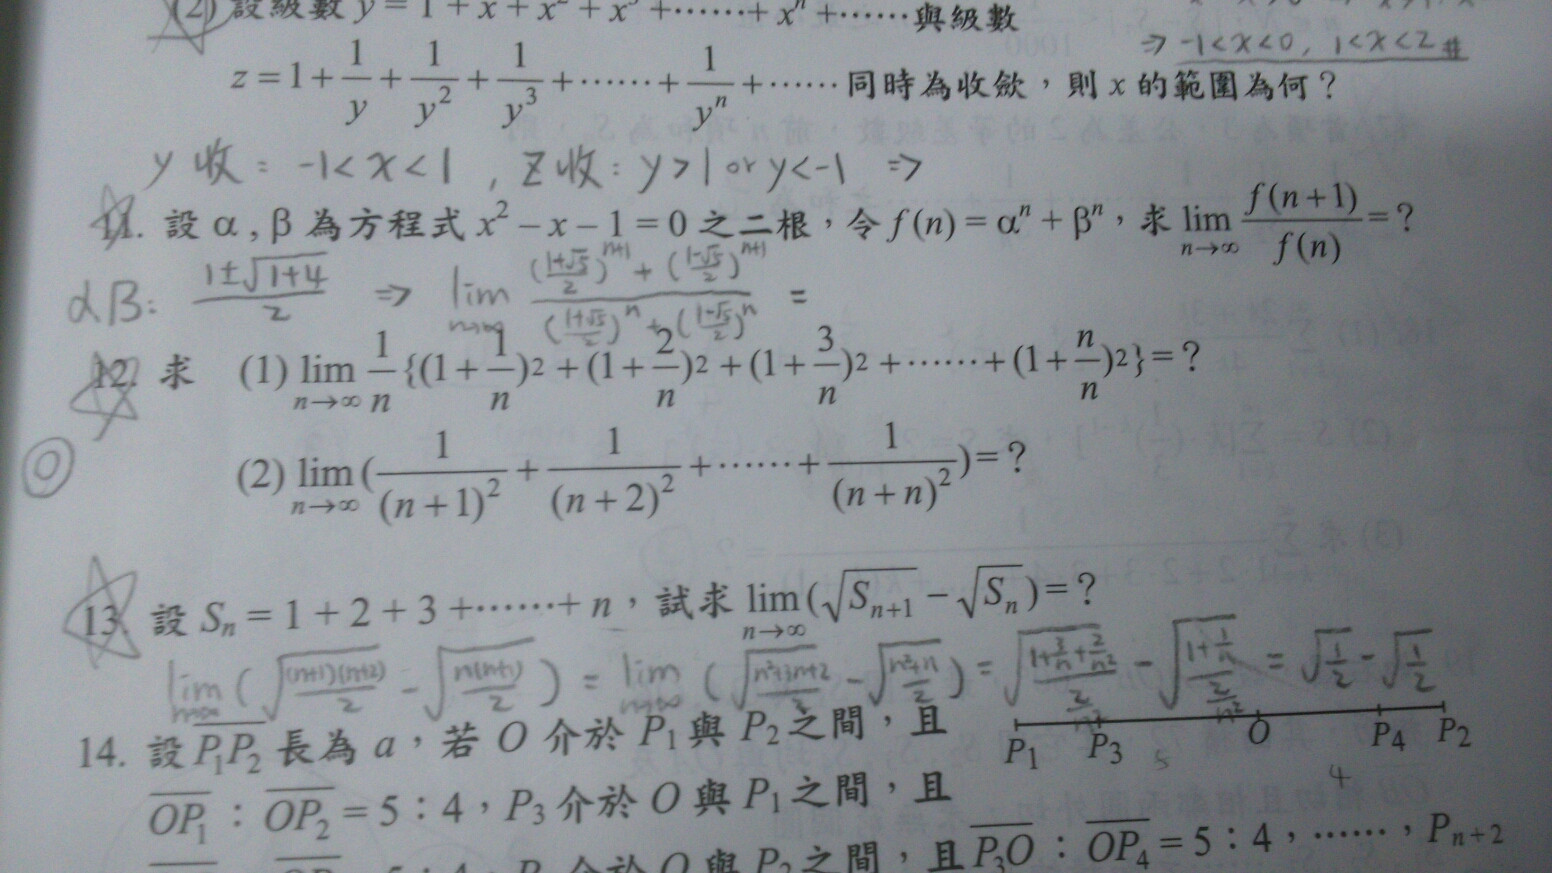 (2) 設級數 y = 1 + x + x² + x³ + …… + xⁿ + …… 與級數
⇒ -1<x<0, 1<x<2 #
z = 1 + 1/y + 1/y² + 1/y³ + …… + 1/yⁿ + …… 同時為收斂,則 x 的範圍為何?
y 收 : -1 < x < 1 , z 收 : y > 1 or y < -1 ⇒
11. 設 α , β 為方程式 x² − x − 1 = 0 之二根,令 f(n) = αⁿ + βⁿ,求 lim n→∞ f(n+1)/f(n) = ?
αβ: (1±√(1+4))/2 ⇒ lim n→∞ (((1+√5)/2)ⁿ⁺¹ + ((1-√5)/2)ⁿ⁺¹)/(((1+√5)/2)ⁿ + ((1-√5)/2)ⁿ) =
12. 求 (1) lim n→∞ 1/n {(1+1/n)2 + (1+2/n)2 + (1+3/n)2 + …… + (1+n/n)2} = ?
(2) lim n→∞ (1/(n+1)² + 1/(n+2)² + …… + 1/(n+n)²) = ?
13. 設 Sₙ = 1 + 2 + 3 + …… + n,試求 lim n→∞ (√Sₙ₊₁ − √Sₙ) = ?
lim n→∞ (√((n+1)(n+2)/2) - √(n(n+1)/2)) = lim n→∞ (√((n²+3n+2)/2) - √((n²+n)/2)) = √((1+3/n+2/n²)/(2/n²)) - √((1+1/n)/(2/n²)) = √(1/2) - √(1/2)
14. 設 P₁P₂ 長為 a,若 O 介於 P₁ 與 P₂ 之間,且
P₁ P₃ 5 O 4 P₄ P₂
OP₁ : OP₂ = 5 : 4,P₃ 介於 O 與 P₁ 之間,且
介於 O 與 P₂ 之間,且 P₃O : OP₄ = 5 : 4,……,Pₙ₊₂